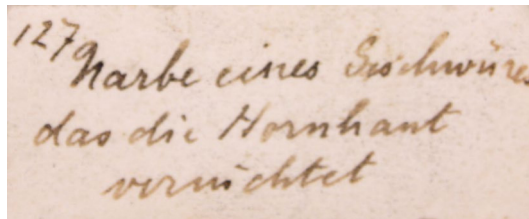 127 Narbe eines Geschwüres
das die Hornhaut
vernichtet